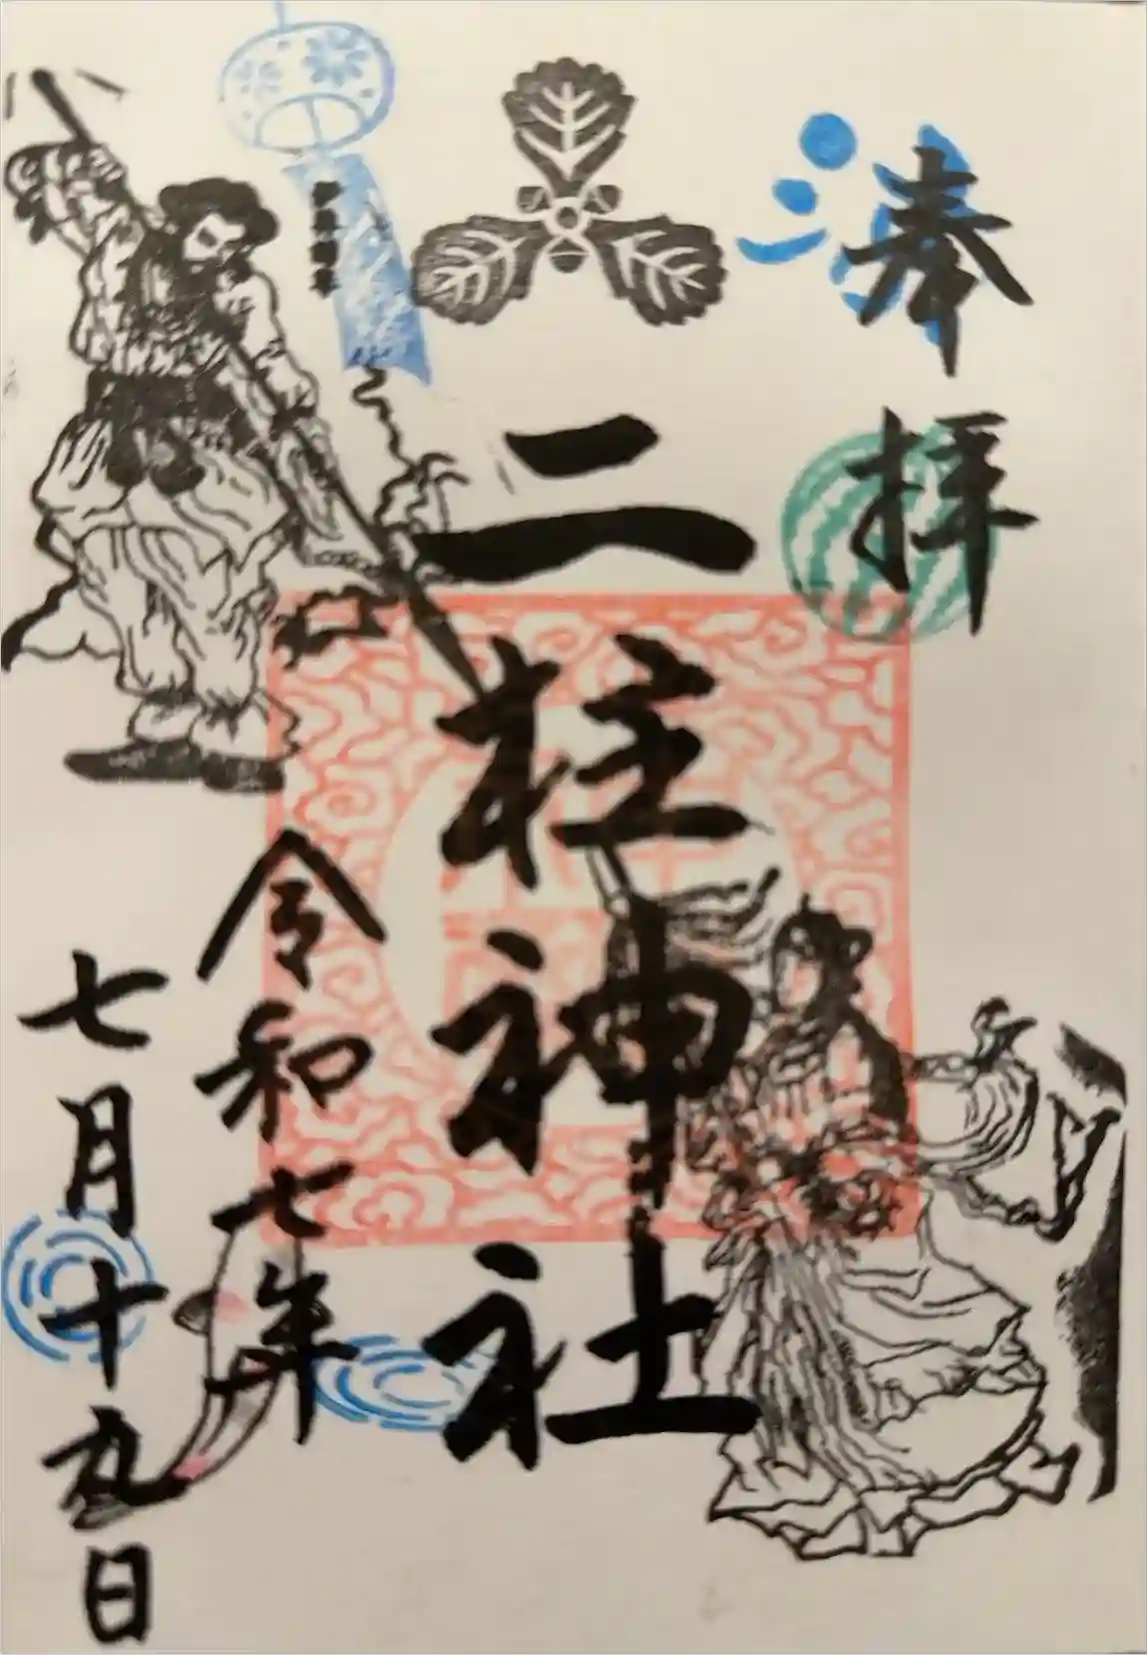 奉拝
二柱神社
令和七年
七月十九日